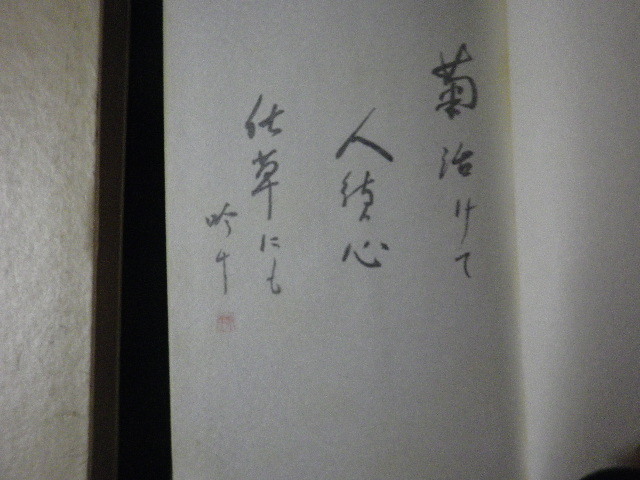 菊活けて
人待心
仕草にも
吟